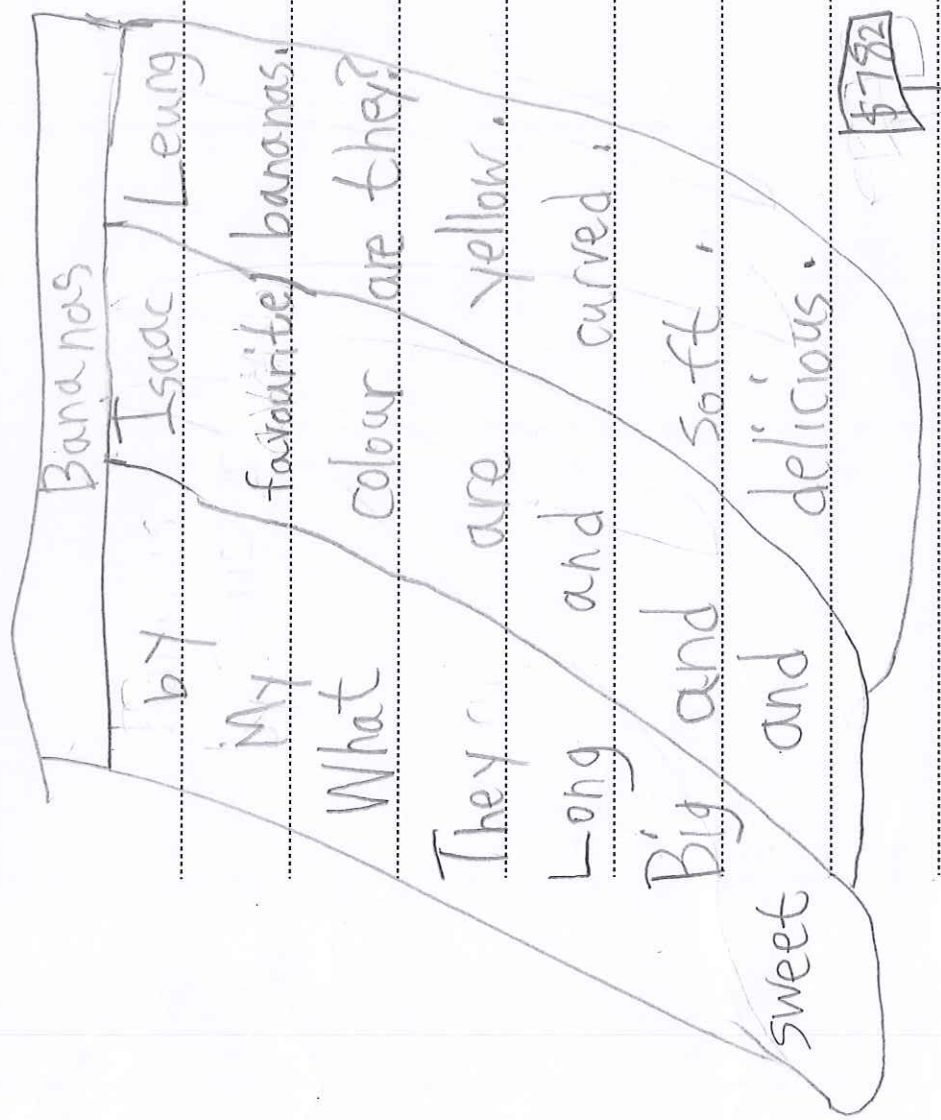 Bananas
by Isaac Leung
My favourite bananas.
What colour are they?
They are yellow.
Long and curved.
Big and soft.
sweet and delicious.
$782